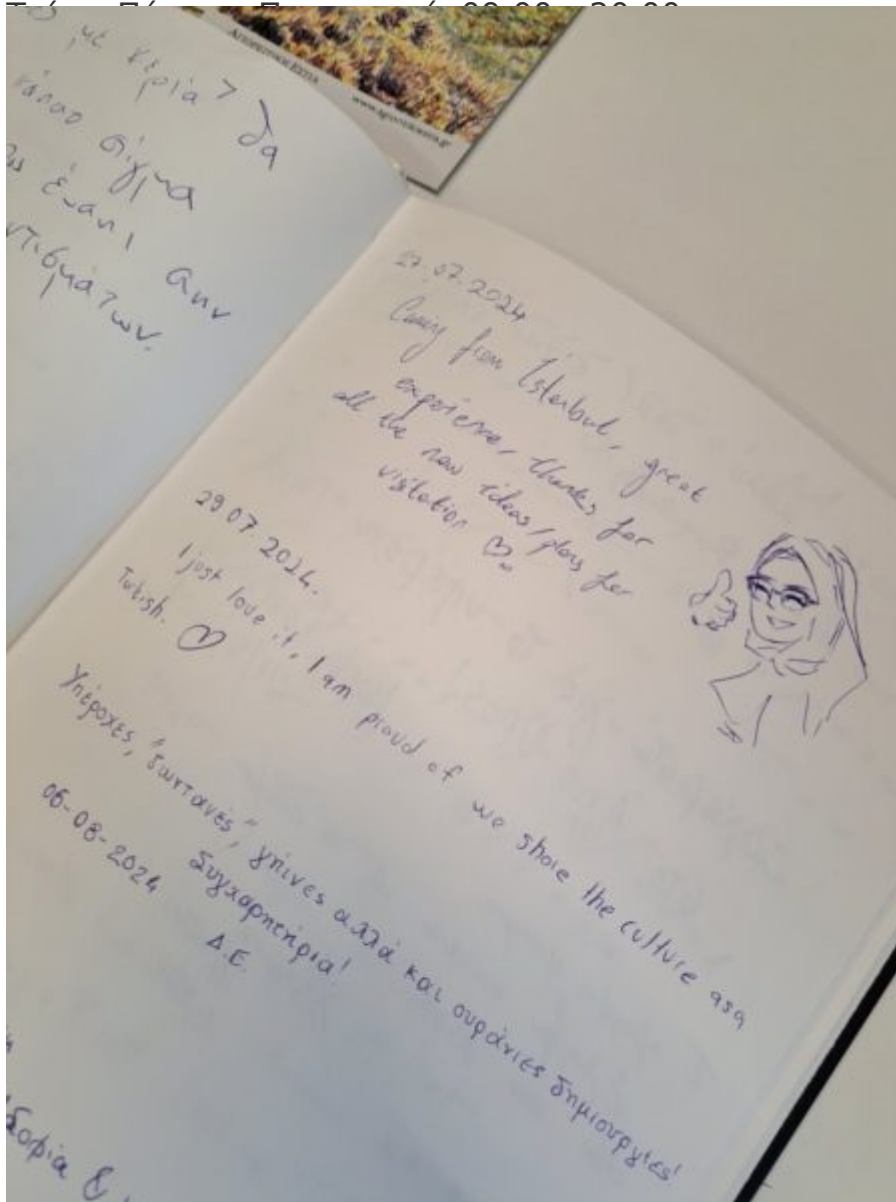 με κεριά> δα
σίγμα
την
27.07.2024
Coming from İstanbul, great
experience, thanks for
all the new ideas/plans for
visitation ♡
29 07 2024.
I just love it, I am proud of we share the culture as a
Turkish. ♡
Υπέροχες, "ζωντανές", γήινες αλλά και ουράνιες δημιουργίες!
Συγχαρητήρια!
06-08-2024
Δ.Ε.
Σοφία &